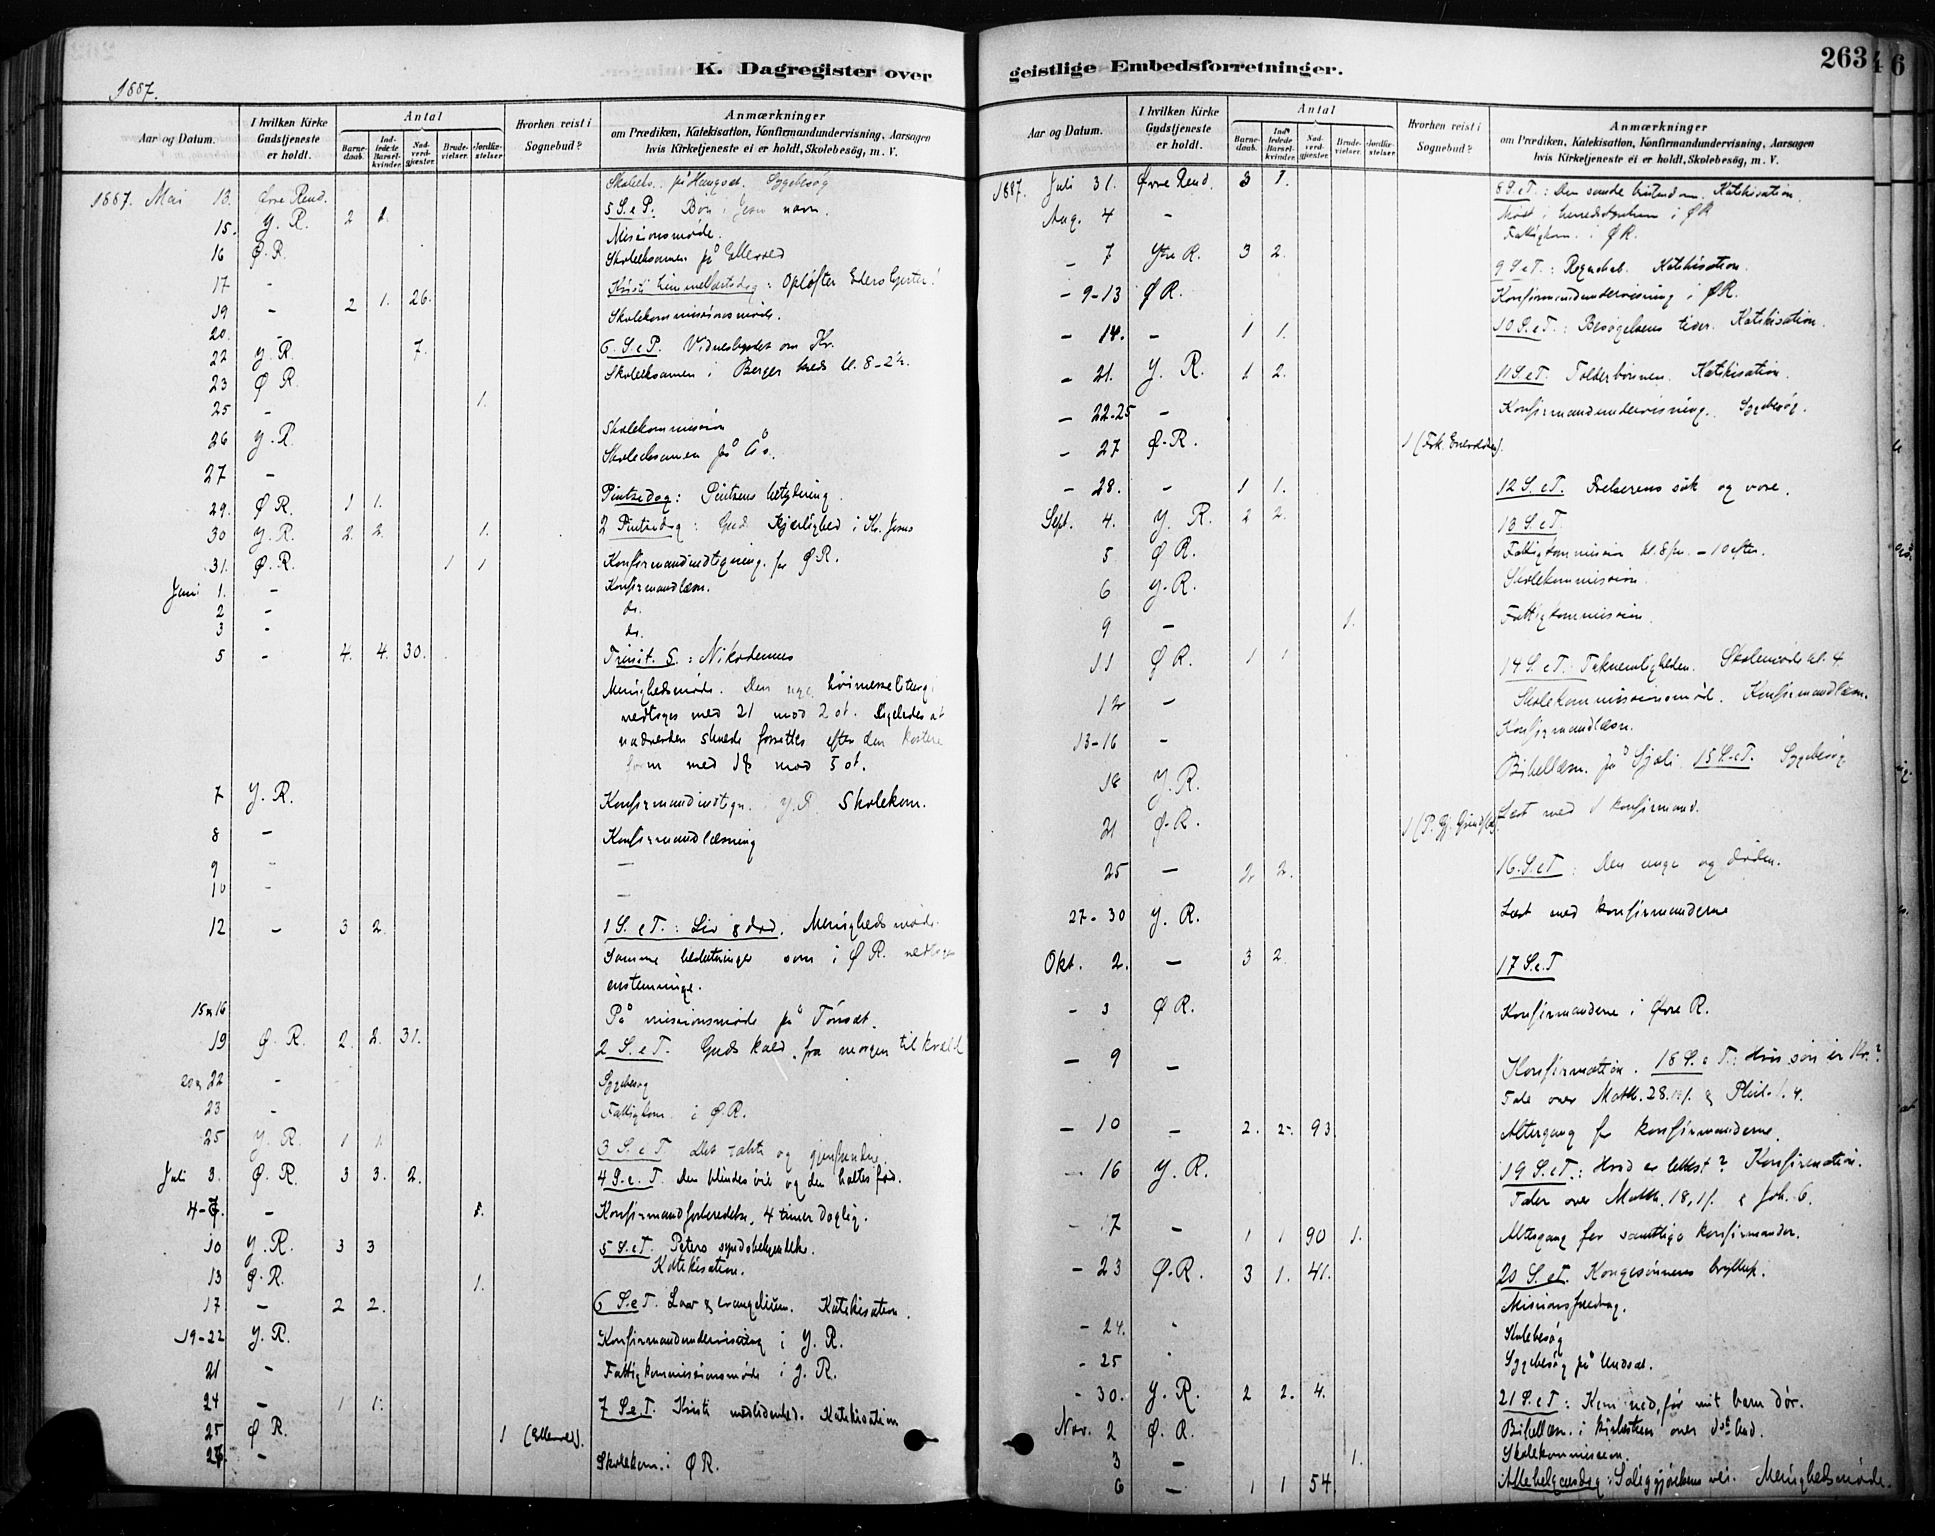 1887.
K. Dagregister over
Aar og Datum.
I hvilken Kirke Gudstjeneste er holdt.
Antal
Barnedaab.
Indledede Barselkvinder.
Nadverdgjæster.
Brudevielser.
Jordfæstelser.
Hvorhen reist i Sognebud?
Anmærkninger
om Prædiken, Katekisation, Konfirmandundervisning, Aarsagen
hvis Kirketjeneste ei er holdt, Skolebesøg, m. V.
1887. Mai 13. Øvre Rend. Sygebesøg
15. Y. R. 2 2. 5 S. e P. Bøn i Jesu navn.
16 Ø. R. Missionsmøde.
17 - Skoleeksamen på Ellevold
19 - 2 1. 26. Kristi himmelfartsdag: Opløfter Eders hjerter!
20. - Skolekommissionsmøde.
22 Y. R. 7. 6. S. e P. Vidnesbyrdet om Kr.
23 Ø R. Skoleeksamen i Berger kreds kl. 8-2½.
25 - 1.
26 Y. R. Skolekommission
27 - Skoleeksamen på Ås.
29. Ø R. 1 1. Pintsedag: Pintsens betydning.
30 Y. R. 2. 2. 1. 2 Pintsedag: Guds Kjærlighed i Kr. Jesus
31. Ø. R. 1 1 Konfirmandindtegning for Ø R.
Juni 1. - Konfirmandlæsn.
2 - do.
3 - do.
5 - 4. 4. 30. Trinit. S.: Nikodemus
Menighedsmøde. Den nye høimesseliturgi
vedtoges med 21 mod 2 st. Ligeledes at
nadverden skulde forrettes efter den kortere
form med 18 mod 5 st.
7 Y. R. Konfirmandindtegn. i Y. R Skolekom.
8 - Konfirmandlæsning
9 - —
10 - —
12 - 3 2. 1 S. e T.: Liv & død. Menighedsmøde.
Samme beslutninger som i Ø R. vedtoges
enstemmige.
15 & 16 På missionsmøde på Tønset.
19 Ø. R. 2. 2. 31. 2 S. e T. Guds kald, fra morgen til kveld
20 & 22 - Sygebesøg
23 - Fattigkom. i Ø. R.
25 Y. R. 1 1. 3 S. e T. Det tabte og gjenfundne.
Juli 3. Ø. R. 3 3. 2. 4 S. e. T. Den blindes vei og den haltes fod.
4-7. - 1. Konfirmandforberedelse, 4 timer daglig.
10 Y. R. 3 3 5 S. e T. Peters syndsbekjendelse.
Katekisation.
13 Ø. R. 1.
17 - 2 2. 6 S. e T. Lov & evangelium. Katekisation.
19-22 Y. R. Konfirmandundervisning i Y. R.
21 - Fattigkommissionsmøde i Y. R.
24 - 1 1. 7 S. e. T. Kristi medlidenhed. Katekisation
25 Ø R. 1 (Ellevold).
26. - Skolekom. i Ø R.
geistlige Embedsforretninger.
263
4
6
Aar og Datum.
I hvilken Kirke Gudstjeneste er holdt.
Antal
Barnedaab.
Indledede Barselkvinder.
Nadverdgjæster.
Brudevielser.
Jordfæstelser.
Hvorhen reist i Sognebud?
Anmærkninger
om Prædiken, Katekisation, Konfirmandundervisning, Aarsagen
hvis Kirketjeneste ei er holdt, Skolebesøg, m. V.
1887. Juli 31. Øvre Rend. 3 1. 8 S. e T.: Den sande kristendom. Katekisation.
Aug. 4 - Møde i herredsstyrelsen i Ø R
Fattigkom. i Ø R.
- 7 Ytre R. 3 2. 9 S. e T.: Regnskab. Katekisation.
- 9-13 Ø R. Konfirmandundervisning i Ø R.
- 14. - 1 1. 10 S. e T.: Besøgelsens tider. Katekisation.
- 21. Y. R. 1 2. 11 S. e T. Tolderbønnen. Katekisation.
- 22-25 - Konfirmandundervisning. Sygebesøg.
- 27 Ø. R. 1
- 28. - 1 1. 12 S. e T. Frelserens suk og vore.
Sept. 4. Y. R. 2 2. 13 S. e T.
5 Ø R. Fattigkommission kl. 8 for. - 10 efter.
6 Y. R. Skolekommission.
9 - 1. Fattigkommission.
11 Ø R. 1 1 14 S. e T.: Taknemligheden. Skolemøde kl. 4
12 - Skolekommissionsmød. Konfirmandlæsn.
13-16 - Konfirmandlæsn.
18 Y. R. Bibellæsn. på Sjøli. 15 S. e T. Sygebesøg
21 Ø. R. 1 Læst med 1 konfirmand.
25 - 2 2. 16. S. e T: Den unge og døden.
27-30 Y. R. Læst med konfirmanderne
Okt. 2. - 3 2. 17 S. e. T
- 3 Ø R. Konfirmanderne i Øvre R.
- 9 - Konfirmation. 18 S. e T.: Hvis søn er Kr.?
Tale over Matth. 28. & Phil. 1. 4.
- 10 - 2. 2. 93 Altergang for konfirmanderne.
- 16 Y. R. 19 S. e T.: Hvad er lettest? Konfirmation.
Taler over Matth. 18, 1f. & Joh. 6.
- 17 - 1 1 90 1. Altergang for samtlige konfirmander.
- 23 Ø. R. 3 1. 41. 20 S. e T. Kongesønnens bryllup.
Missionsforedrag.
- 24. - Skolebesøg
- 25 - Sygebesøg på Undset.
- 30. Y. R. 2 2. 4. 21 S. e T: Kom ned, før mit barn dør.
Nov. 2 Ø. R. Bibellæsn. i kirkestuen over
3 - 1. Skolekommission.
6 - 1 1 54 Allehelgensdag: Saliggjørelsens vei. Menighedsmøde.